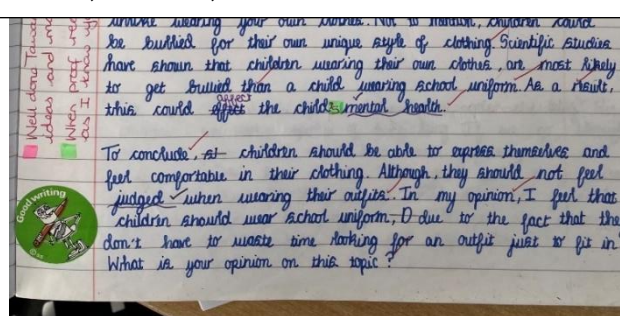 unlike wearing your own clothes. Not to mention, children could
be bullied for their own unique style of clothing. Scientific studies
have shown that children wearing their own clothes, are most likely
to get bullied than a child wearing school uniform. As a result,
affect
this could effect the childs mental health.
To conclude, st children should be able to express themselves and
feel comfortable in their clothing. Although, they should not feel
judged when wearing their outfits. In my opinion, I feel that
children should wear school uniform, D due to the fact that the
don't have to waste time looking for an outfit just to fit in
What is your opinion on this topic?
Well done
ideas and
When
as
proof
I
Good writing